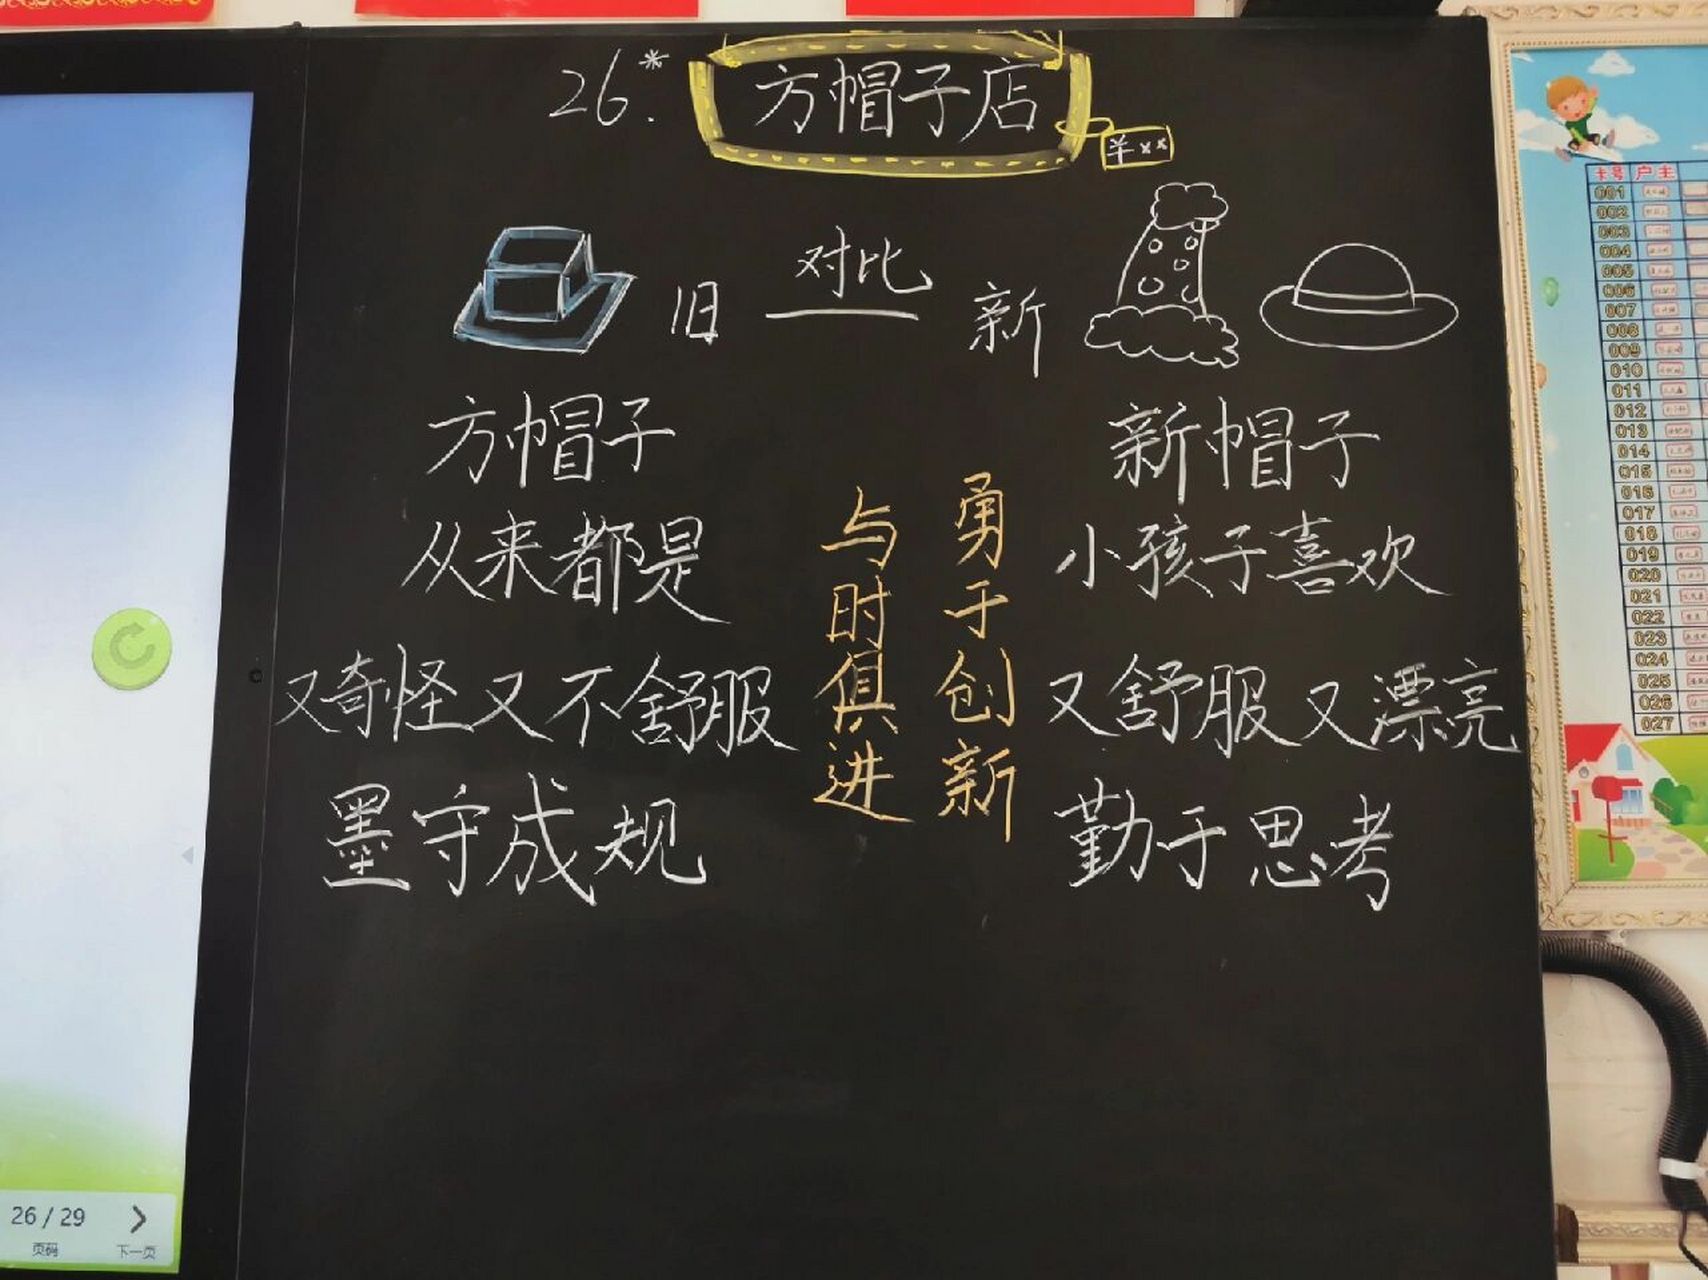 26*. 方帽子店
半××
旧 对比 新
方帽子
从来都是
又奇怪又不舒服
墨守成规
与时俱进
勇于创新
新帽子
小孩子喜欢
又舒服又漂亮
勤于思考
26 / 29
页码
下一页
卡号 户主
001
002
003
004
005
006
007
008
009
010
011
012
013
014
015
016
017
018
019
020
021
022
023
024
025
026
027